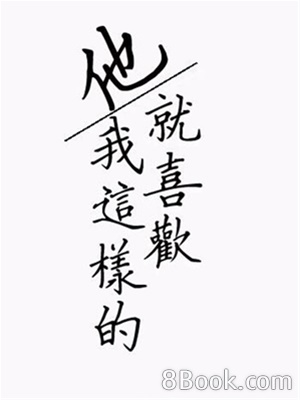 他
就喜歡
我這樣的
8Book.com